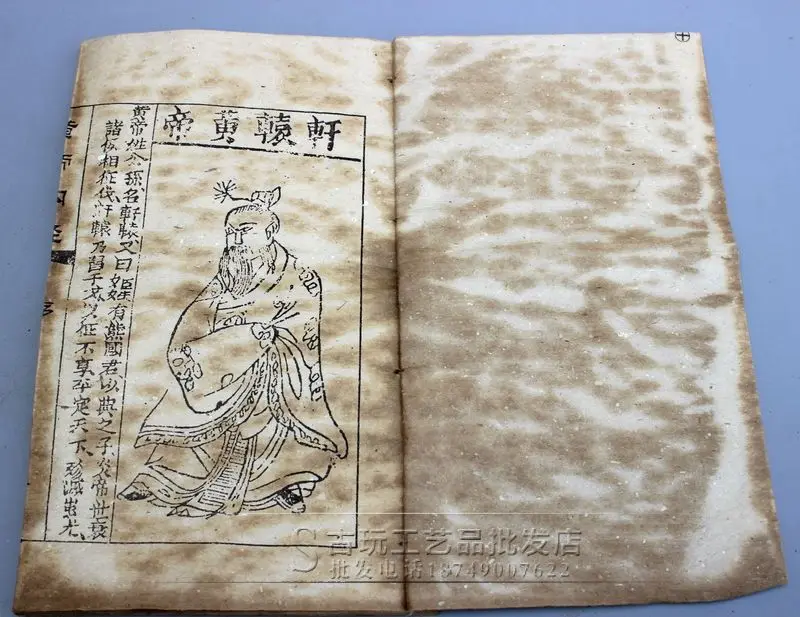 軒轅黃帝
黄帝姓公孫名軒轅又曰有熊國君少典之子炎帝世衰
諸侯相征伐軒轅乃習干戈以征不享平定天下殄滅蚩尤
黃帝內經 序
古玩工艺品批发店
批发电话18749007622